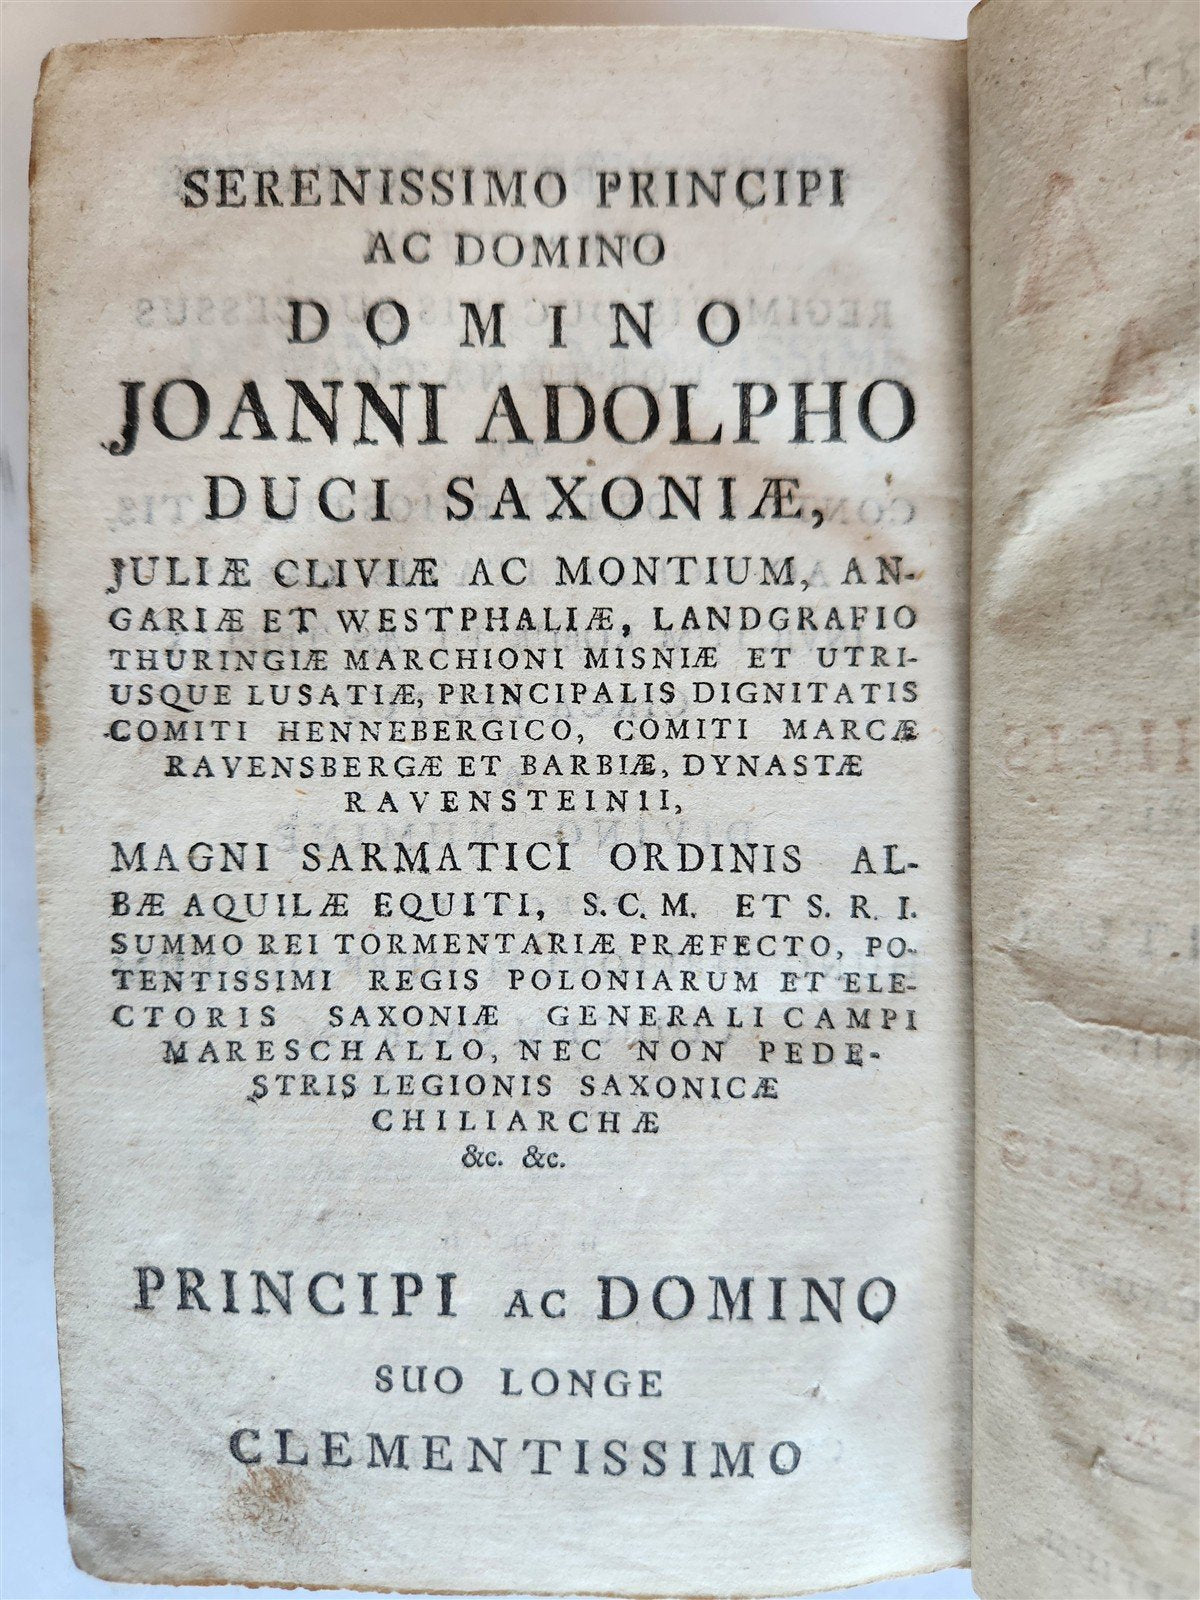 SERENISSIMO PRINCIPI
AC DOMINO
DOMINO
JOANNI ADOLPHO
DUCI SAXONIÆ,
JULIÆ CLIVIÆ AC MONTIUM, AN-
GARIÆ ET WESTPHALIÆ, LANDGRAFIO
THURINGIÆ MARCHIONI MISNIÆ ET UTRI-
USQUE LUSATIÆ, PRINCIPALIS DIGNITATIS
COMITI HENNEBERGICO, COMITI MARCÆ
RAVENSBERGÆ ET BARBIÆ, DYNASTÆ
RAVENSTEINII,
MAGNI SARMATICI ORDINIS AL-
BÆ AQUILÆ EQUITI, S. C. M. ET S. R. I.
SUMMO REI TORMENTARIÆ PRÆFECTO, PO-
TENTISSIMI REGIS POLONIARUM ET ELE-
CTORIS SAXONIÆ GENERALI CAMPI
MARESCHALLO, NEC NON PEDE-
STRIS LEGIONIS SAXONICÆ
CHILIARCHÆ
&c. &c.
PRINCIPI AC DOMINO
SUO LONGE
CLEMENTISSIMO